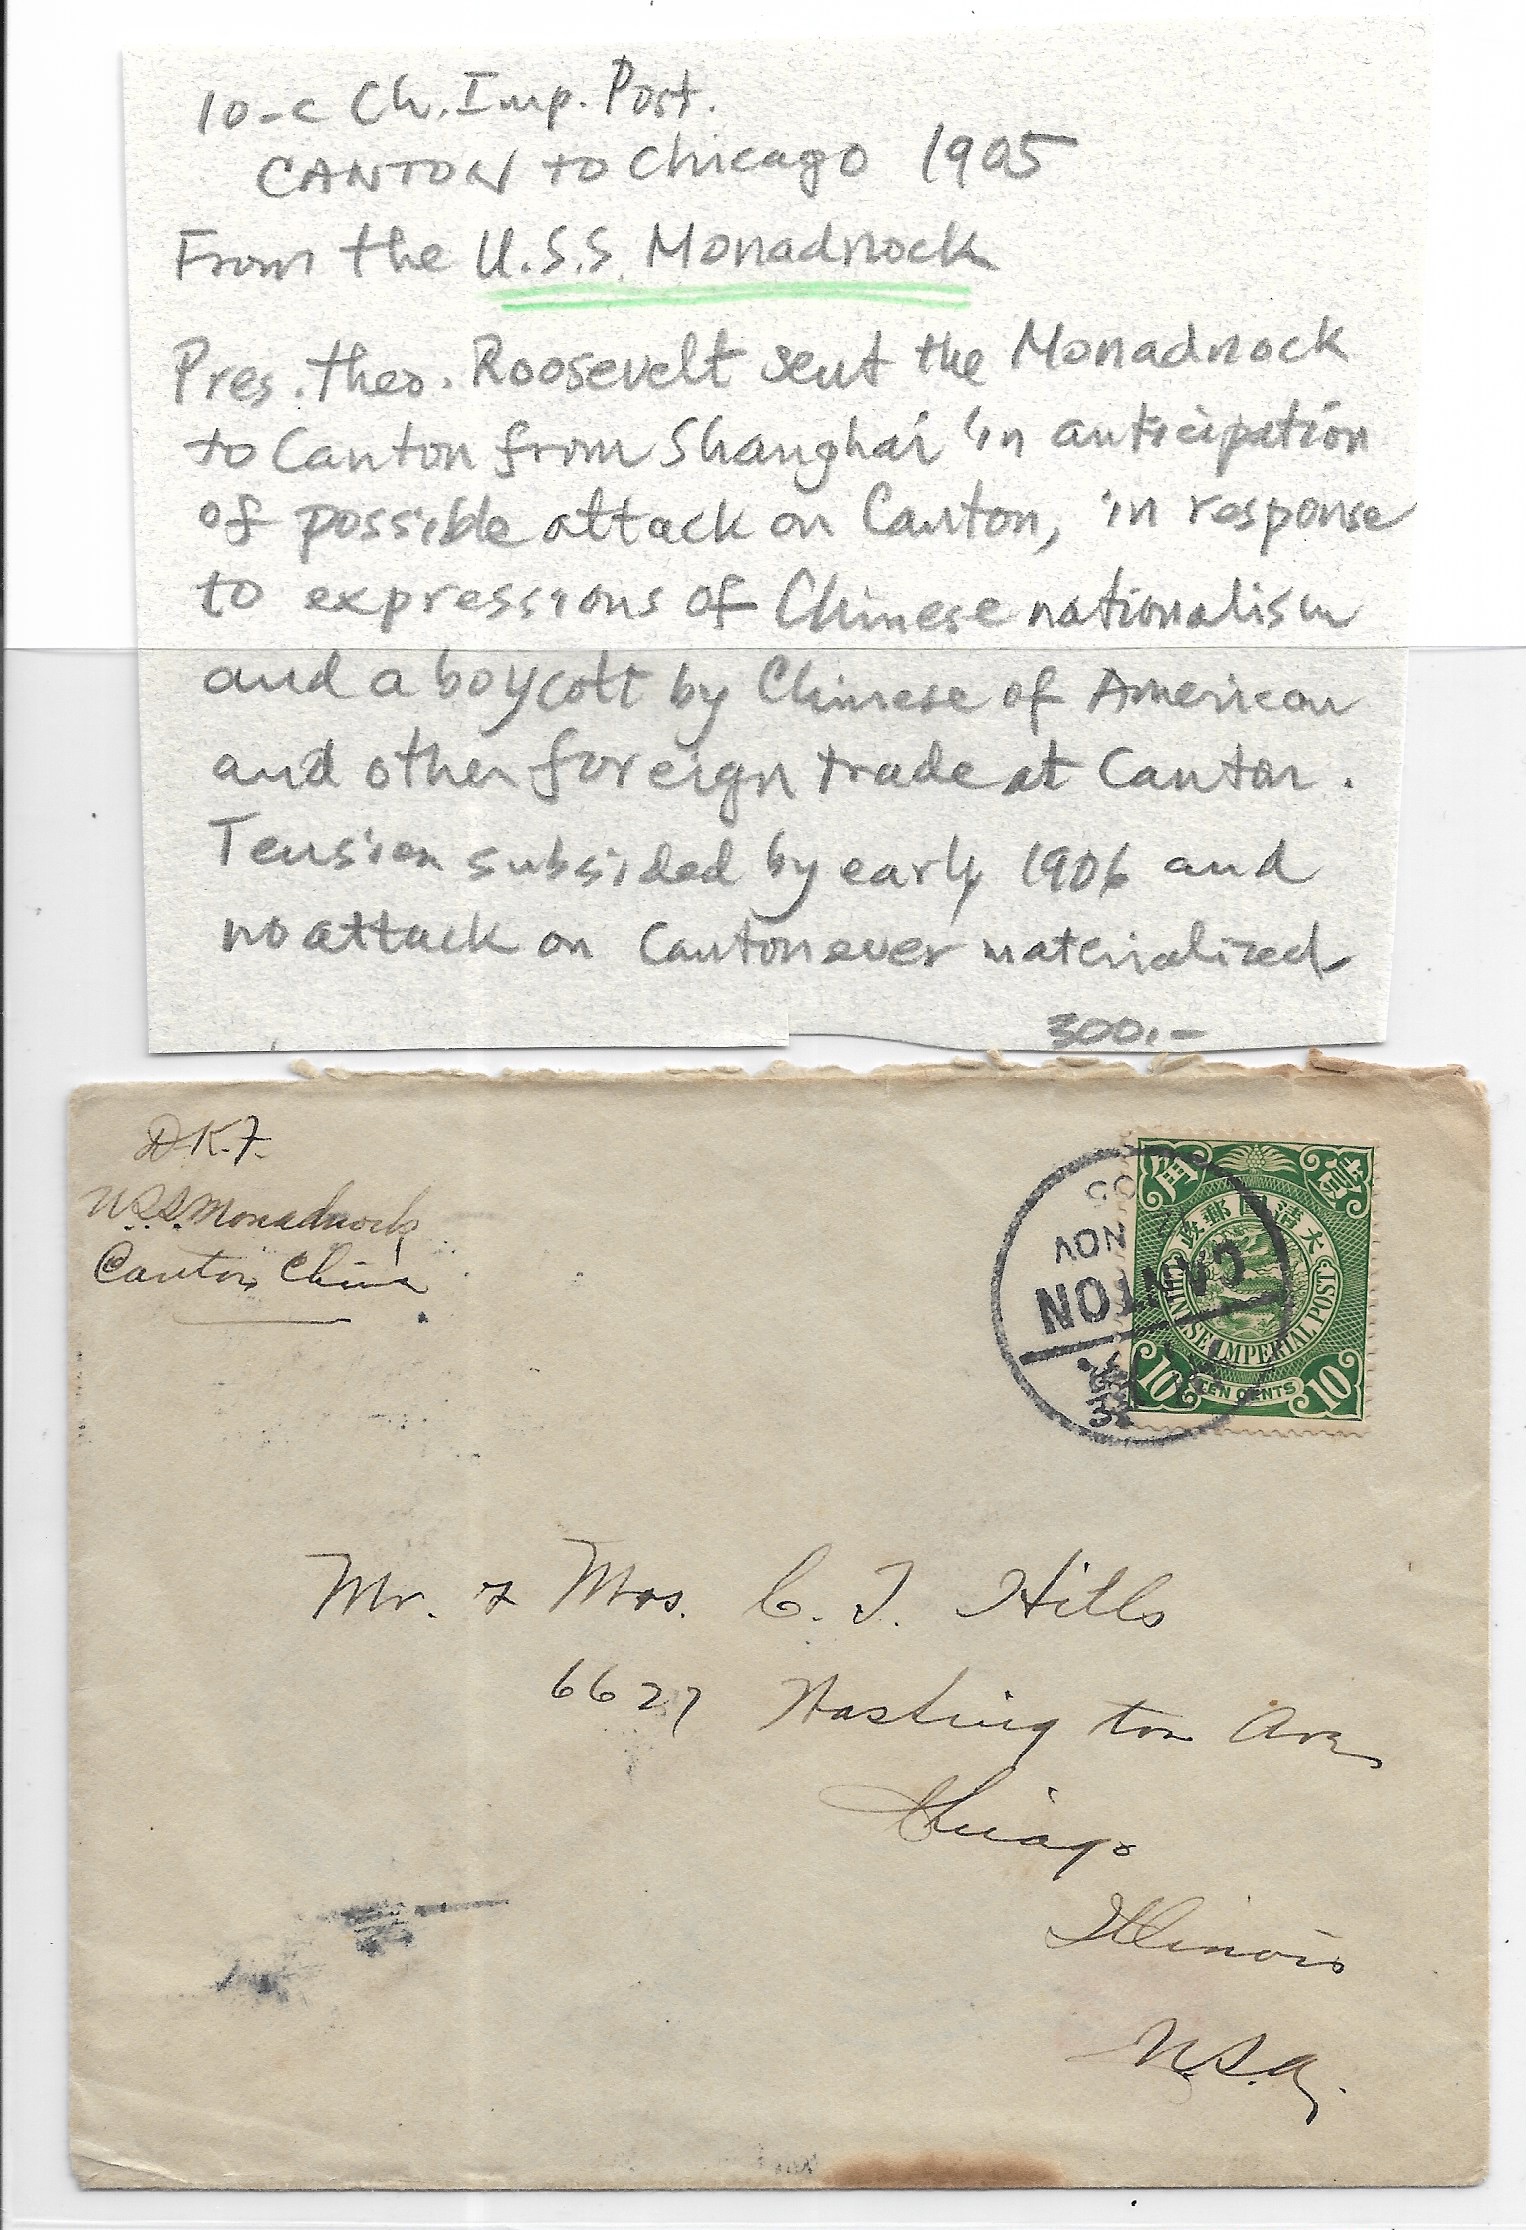 10-c Ch. Imp. Post.
CANTON to Chicago 1905
From the U.S.S. Monadnock
Pres. Theo. Roosevelt sent the Monadnock
to Canton from Shanghai in anticipation
of possible attack on Canton, in response
to expressions of Chinese nationalism
and a boycott by Chinese of American
and other foreign trade at Canton.
Tension subsided by early 1906 and
no attack on Canton ever materialized
300.-
D.K.F.
U.S.S. Monadnock
Canton China
05
NOV
CANTON
大清國郵政
CHINESE IMPERIAL POST
10 TEN CENTS 10
Mr. & Mrs. C. T. Hills
6627 Washington Ave
Chicago
Illinois
U.S.A.